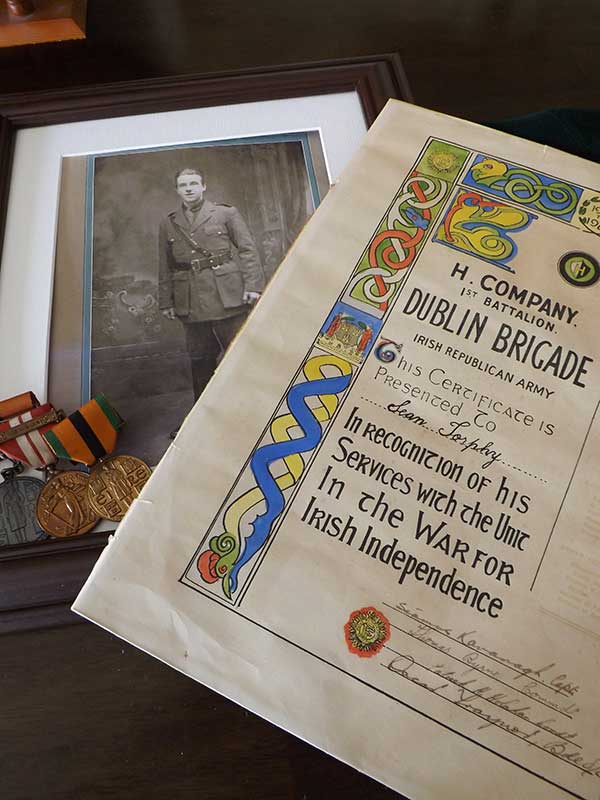 H. COMPANY.
1ST BATTALION.
DUBLIN BRIGADE
IRISH REPUBLICAN ARMY
This Certificate is
Presented To
Sean Torphy
In recognition of his
Services with the Unit
In the War for
Irish Independence
Seamus Kavanagh Capt